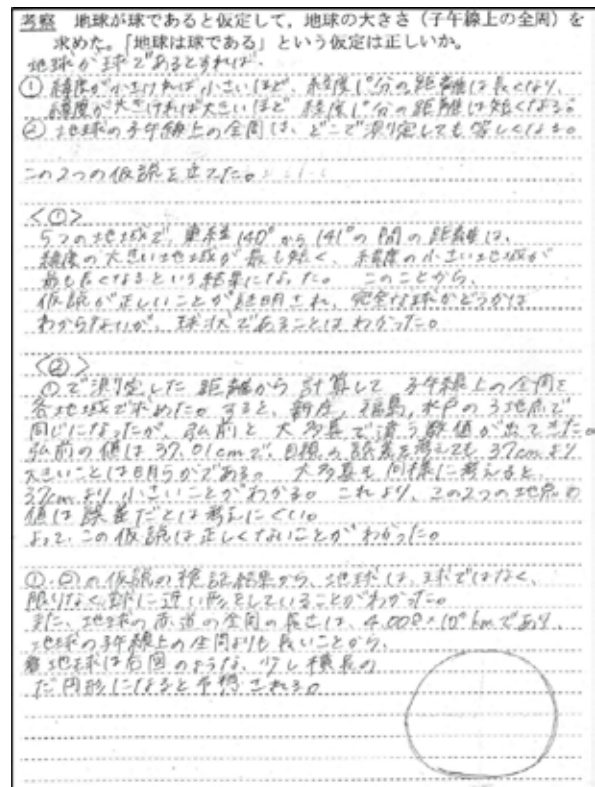 考察 地球が球であると仮定して,地球の大きさ(子午線上の全周)を
求めた。「地球は球である」という仮定は正しいか。
地球が球であるとすれば、
① 緯度が小さければ小さいほど、経度1°分の距離は長くなり、
緯度が大きければ大きいほど 経度1°分の距離は短くなる。
② 地球の子午線上の全周は、どこで測定しても等しくなる。
この2つの仮説を立てた。
<①>
5つの地域で、東経140°から141°の間の距離は、
緯度の大きい地域が最も短く、緯度の小さい地域が
最も長くなるという結果になった。このことから、
仮説が正しいことが証明され、完全な球かどうかは
わからないが、球状であることはわかった。
<②>
①で測定した距離から計算して 子午線上の全周を
各地域で求めた。すると、新庄、福島、水戸の3地点で
同じになったが、弘前と大多喜で違う数値が出てきた。
弘前の値は37.01cmで、目視の誤差を考えても、37cmより
大きいことは明らかである。大多喜も同様に考えると、
37cmより小さいことがわかる。これより、この2つの地点の
値は誤差だとは考えにくい。
よって、この仮説は正しくないことがわかった。
①、②の仮説の検証結果から、地球は、球ではなく、
限りなく球に近い形をしていることがわかった。
また、地球の赤道の全周の長さは、4.008×10⁴kmであり、
地球の子午線上の全周よりも長いことから、
地球は右図のような、少し横長の
だ円形になると予想される。